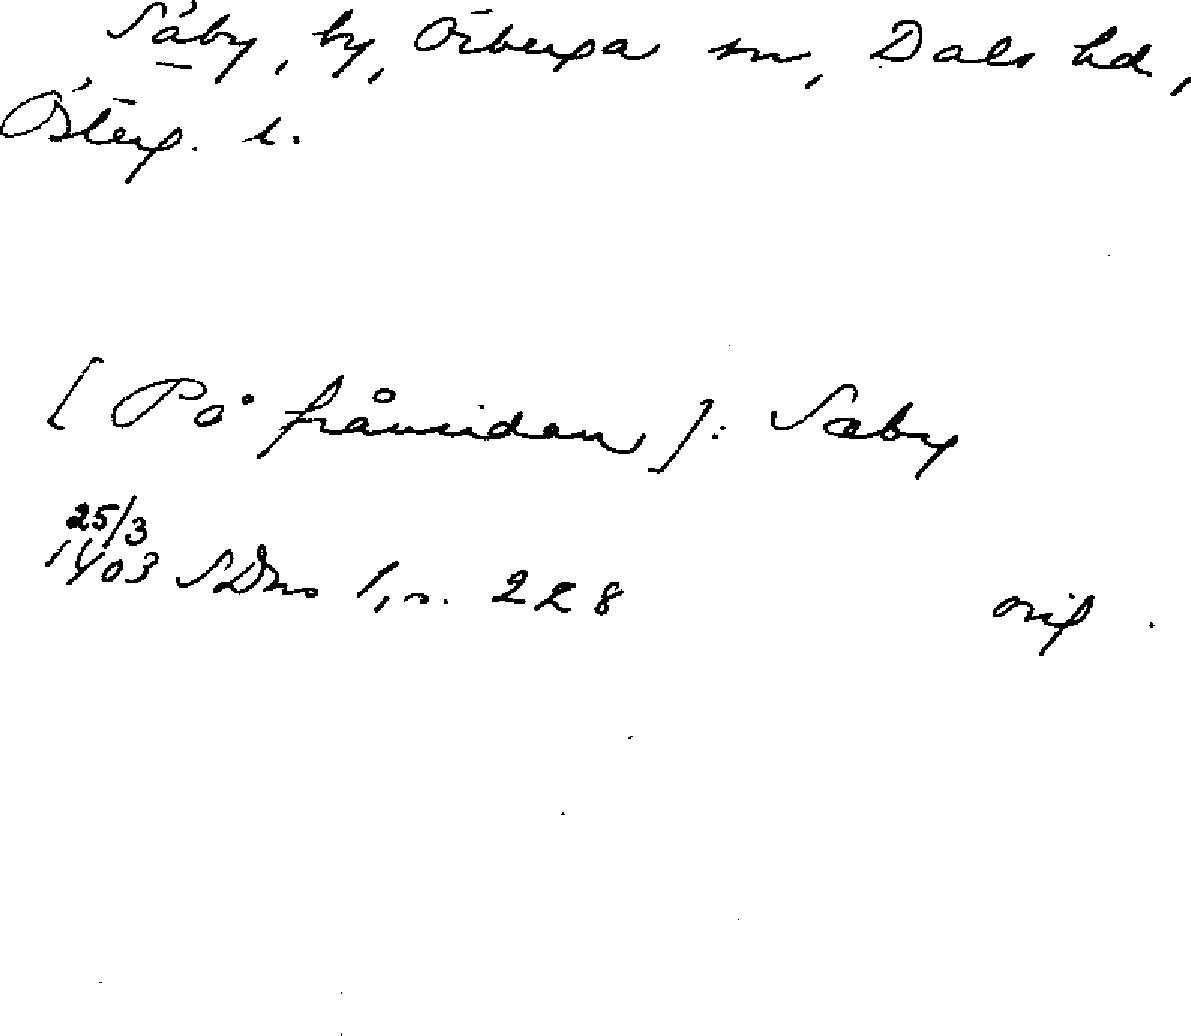 Säby, by, Örberga sn, Dals hd,
Österg. l.
[På frånsidan]: Sæby
25/3
1403 SDns 1, s. 228 orig.